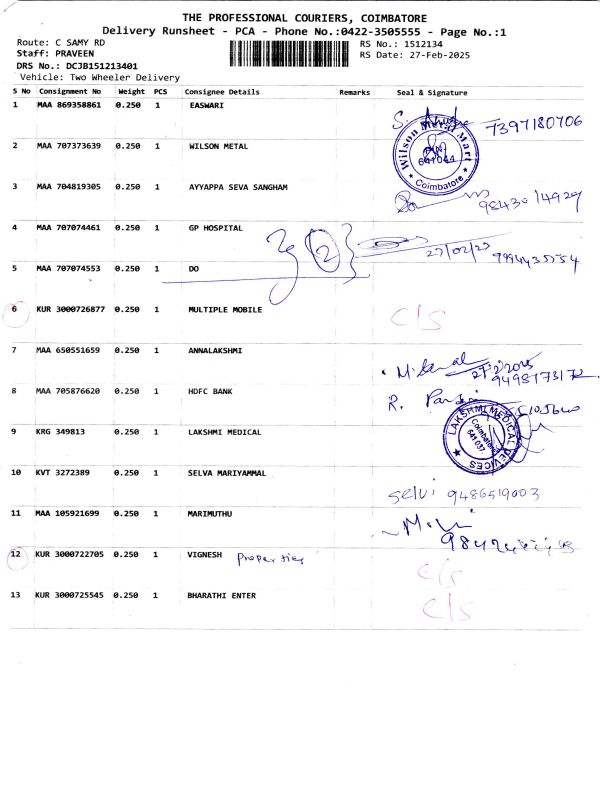 THE PROFESSIONAL COURIERS, COIMBATORE
Delivery Runsheet - PCA - Phone No.:0422-3505555 - Page No.:1
Route: C SAMY RD RS No.: 1512134
Staff: PRAVEEN RS Date: 27-Feb-2025
DRS No.: DCJB151213401
Vehicle: Two Wheeler Delivery
S No Consignment No Weight PCS Consignee Details Remarks Seal & Signature
1 MAA 869358861 0.250 1 EASWARI 7397180706
2 MAA 707373639 0.250 1 WILSON METAL Wilson Metal Mart PIN 641044 Coimbatore
3 MAA 704819305 0.250 1 AYYAPPA SEVA SANGHAM
4 MAA 707074461 0.250 1 GP HOSPITAL 2
5 MAA 707074553 0.250 1 DO
6 KUR 3000726877 0.250 1 MULTIPLE MOBILE C/S
7 MAA 650551659 0.250 1 ANNALAKSHMI
8 MAA 705876620 0.250 1 HDFC BANK R.
9 KRG 349813 0.250 1 LAKSHMI MEDICAL LAKSHMI MEDICAL DEVICES Coimbatore 641 037.
10 KVT 3272389 0.250 1 SELVA MARIYAMMAL Selvi 9486519003
11 MAA 105921699 0.250 1 MARIMUTHU
12 KUR 3000722705 0.250 1 VIGNESH Properties C/S
13 KUR 3000725545 0.250 1 BHARATHI ENTER C/S